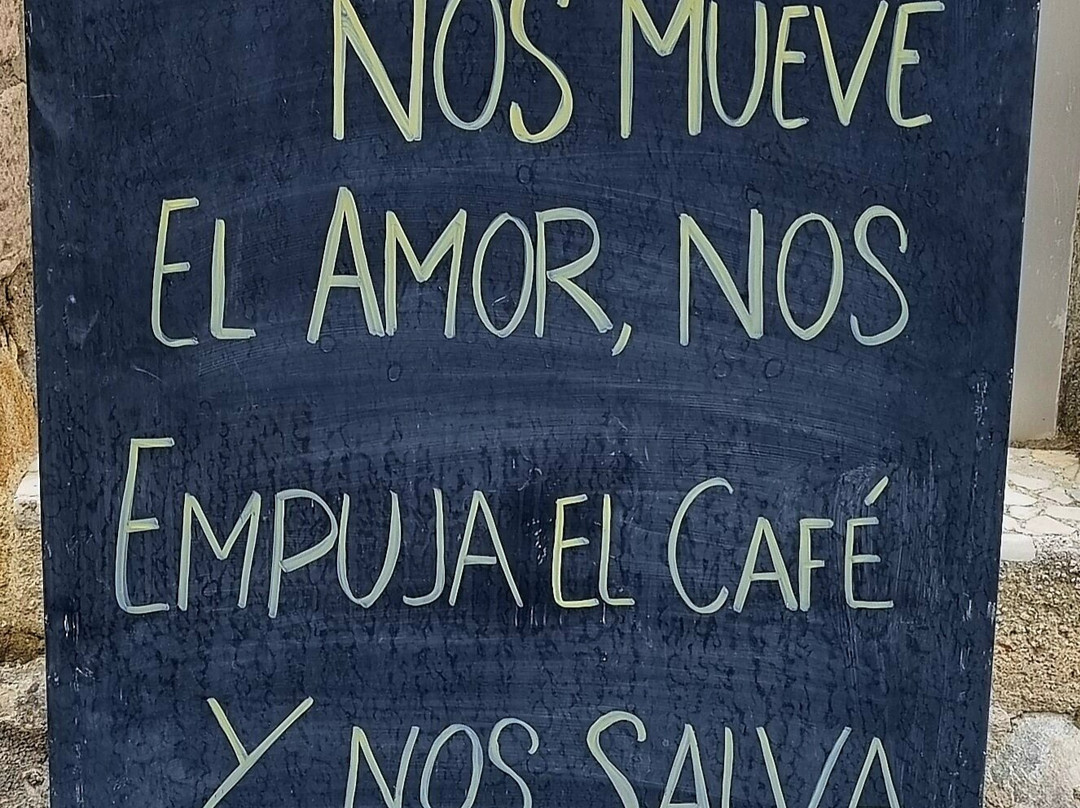 NOS MUEVE
EL AMOR, NOS
EMPUJA EL CAFÉ
Y NOS SALVA